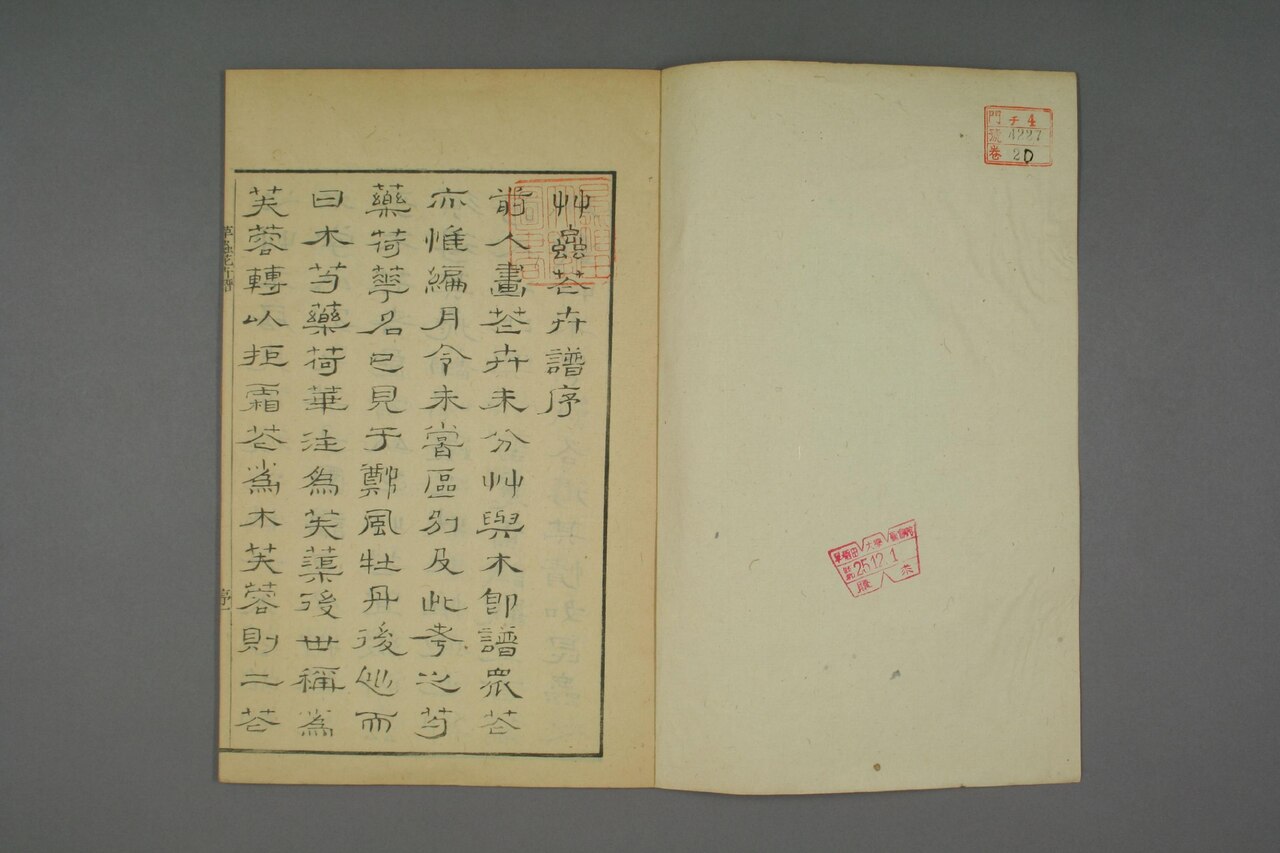 艸蟲芲卉譜序
前人畫芲卉未分艸與木即譜眾芲
亦惟編月令未嘗區別及此考之芍
藥荷華名已見于鄭風牡丹後出而
曰木芍藥荷華注為芙蕖後世稱為
芙蓉轉以拒霜芲為木芙蓉則二芲
草蟲花卉譜
序一
門 チ4
號 4227
卷 20
早稻田大學圖書館
25.12.1